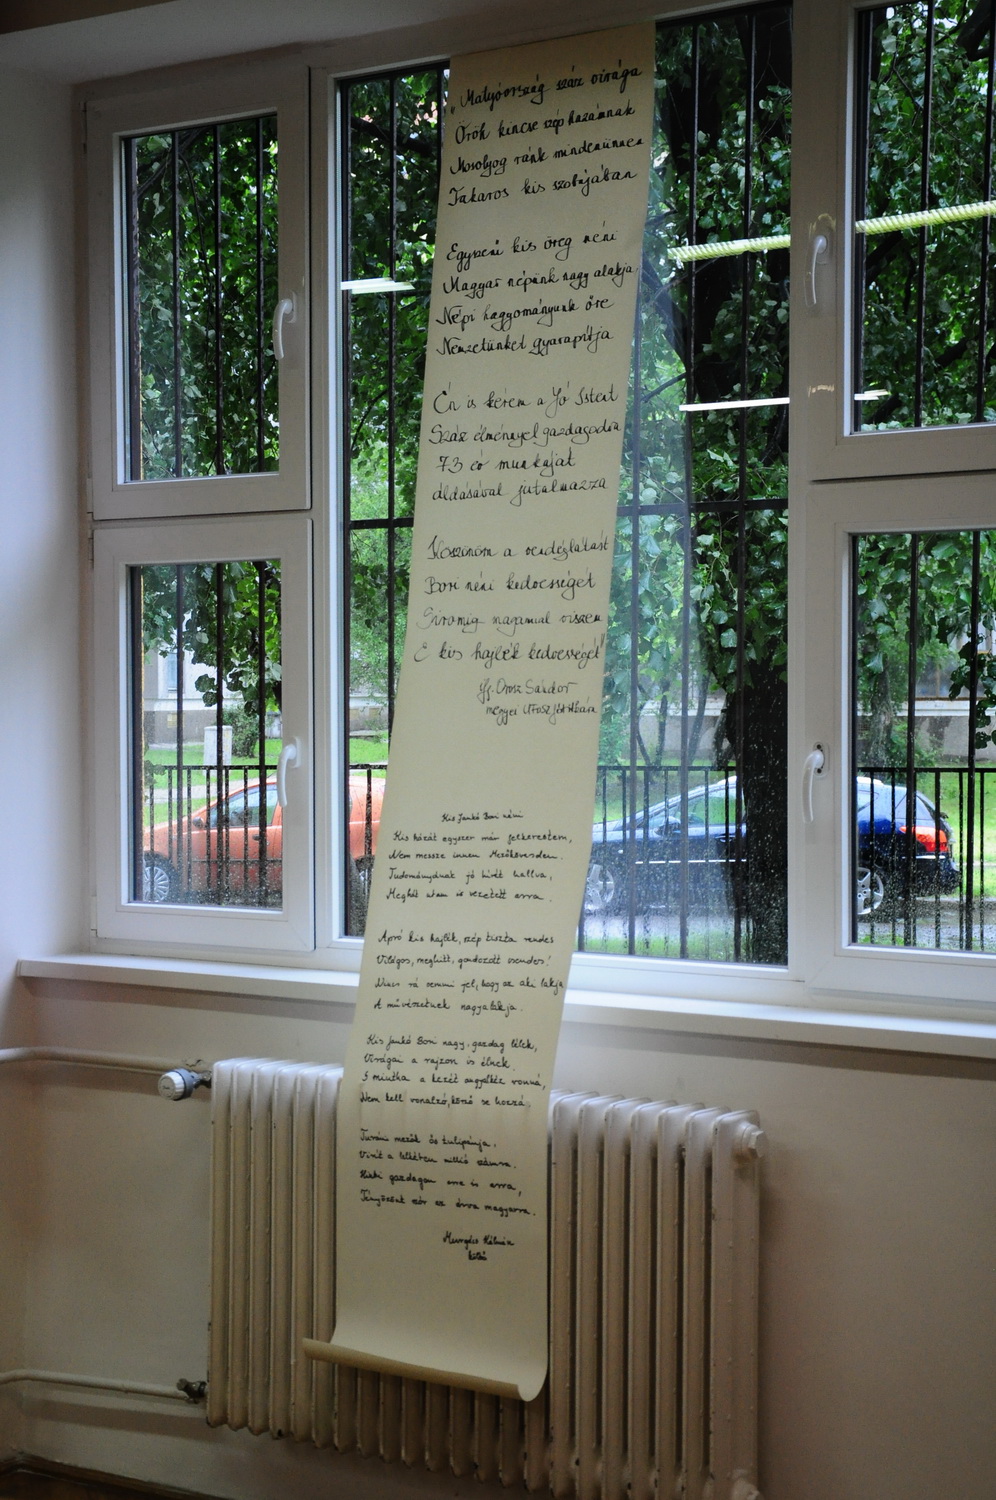 „Matyóország száz virága
Örök kincse szép hazámnak
Mosolyog ránk mindenünnen
Takaros kis szobájában
Egyszerű kis öreg néni
Magyar népünk nagy alakja
Népi hagyományunk őre
Nemzetünket gyarapítja
Én is kérem a Jó Istent
Száz élménnyel gazdagodva
73 év munkáját
áldásával jutalmazza
Köszönöm a vendéglátást
Bori néni kedvességét
Síromig magammal viszem
E kis hajlék kedvességét"
Ifj. Orosz Sándor
megyei
Kis Jankó Bori néni
Kis házát egyszer már felkerestem,
Nem messze innen Mezőkövesden.
Tudományának jó hírét hallva,
Meghát utam is vezetett arra.
Apró kis hajlék, szép tiszta rendes
Világos, meghitt, gondozott csendes!
Nincs rá semmi jel, hogy az aki lakja
A művészetnek nagyalakja.
Kis Jankó Bori nagy, gazdag lélek,
Virágai a rajzon is élnek.
S mintha a kezét angyalkéz vonná,
Nem kell vonalzó, körző se hozzá.
Turáni mezők ős tulipánja.
Virít a lelkében millió számra.
Hinti gazdagon erre is arra,
Fényözönt szór az árva magyarra.
Kálmán
költő